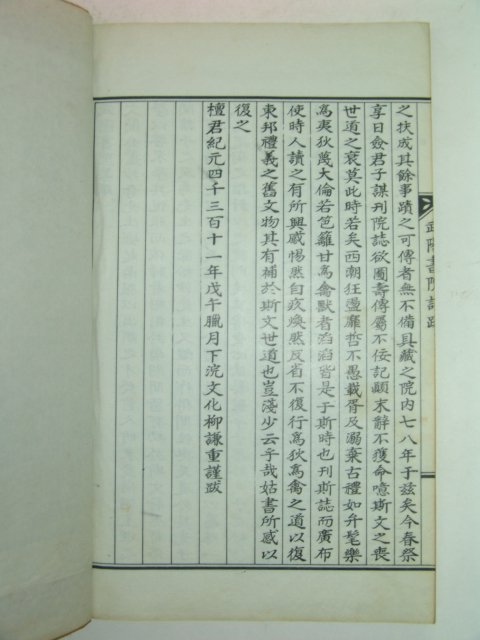 之扶成其餘事蹟之可傳者無不備具藏之院內七八年于玆矣今春祭
享日僉君子謀刊院誌欲圖壽傳屬不佞記顚末辭不獲命噫斯文之喪
世道之衰莫此時若矣西潮狂盪靡哲不愚載胥及溺棄古禮如弁髦樂
爲夷狄蔑大倫若笆籬甘爲禽獸者滔滔皆是于斯時也刊斯誌而廣布
使時人讀之有所興感惕然自疚煥然反省不復行爲狄爲禽之道以復
東邦禮義之舊文物其有補於斯文世道也豈淺少云乎哉姑書所感以
復之
檀君紀元四千三百十一年戊午臘月下浣文化柳謙重謹跋
武陽書院誌跋